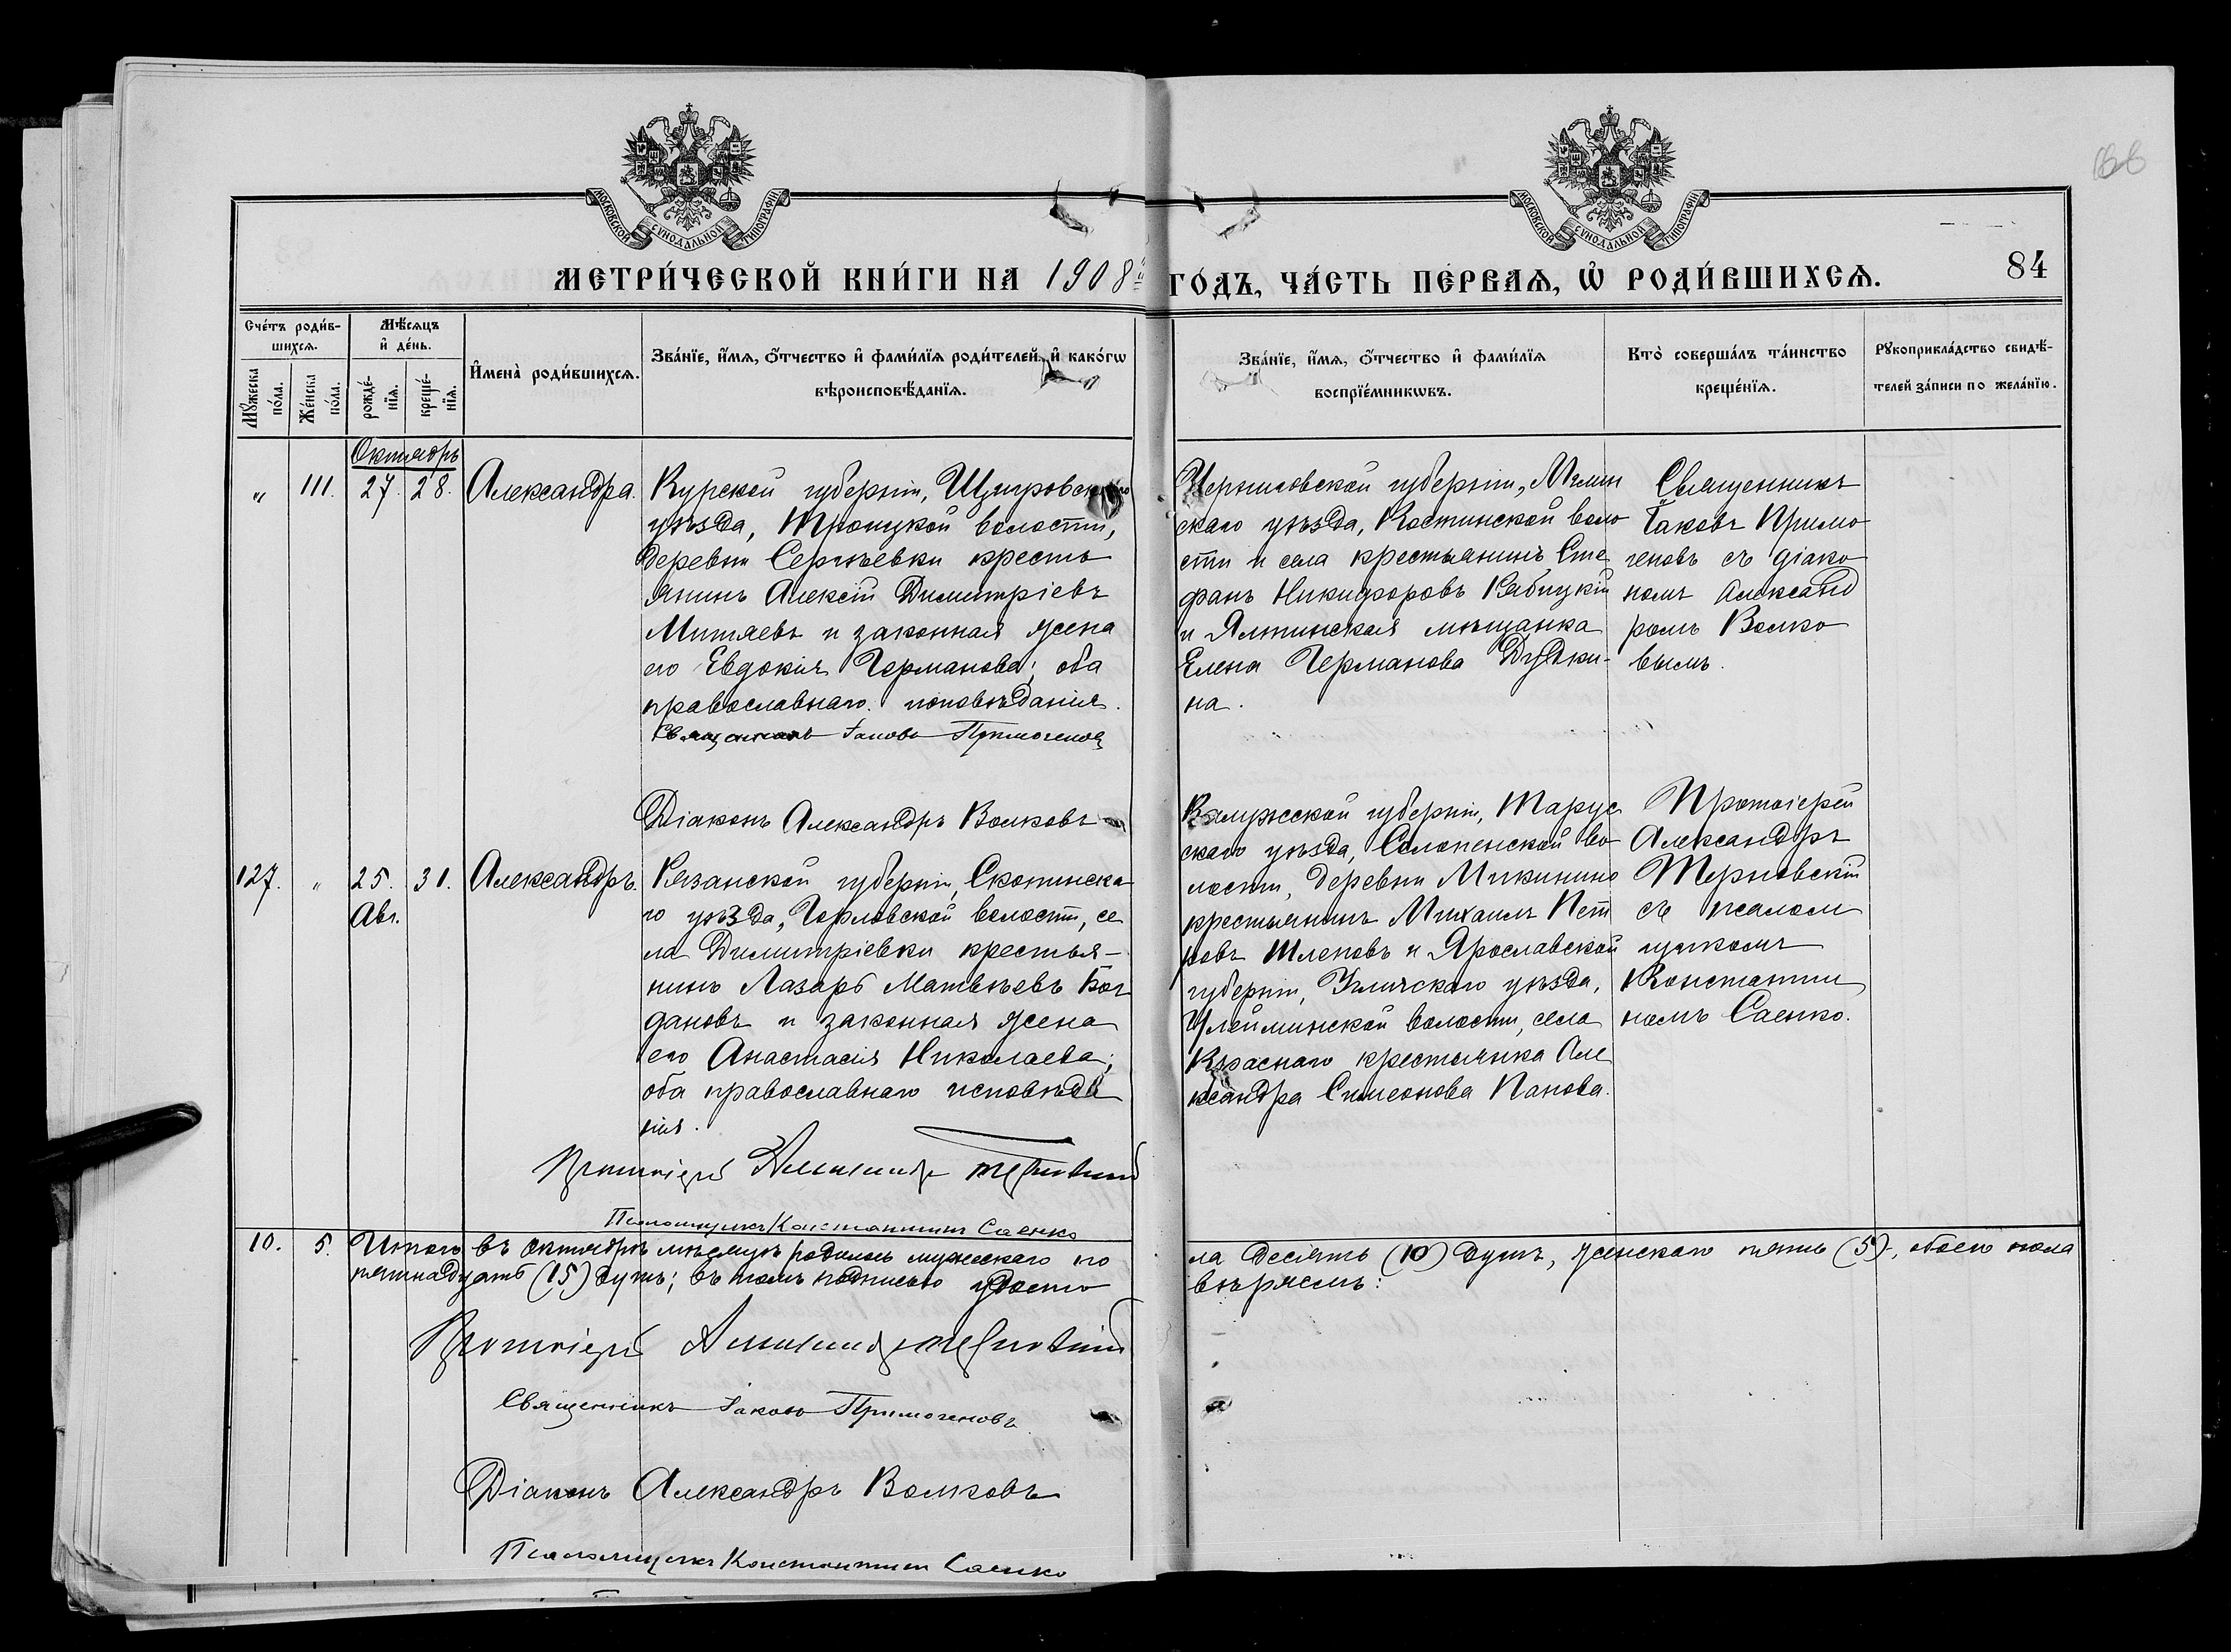 МОСКОВСКОЙ СѴНОДАЛЬНОЙ ТИПОГРАФІИ
МОСКОВСКОЙ СѴНОДАЛЬНОЙ ТИПОГРАФІИ
МЕТРИ́ЧЕСКОЙ КНИ́ГИ НА 1908 ГО́ДЪ, ЧА́СТЬ ПЕ́РВАѦ, Ѡ҆ РОДИ́ВШИХСѦ.
84
Сче́тъ роди́в-
шихсѧ.
Мꙋ́жеска
по́ла.
Же́нска
по́ла.
Мѣ́сѧцъ
и҆ де́нь.
рожде́-
нїѧ.
креще́-
нїѧ.
И҆мена̀ роди́вшихсѧ.
Зва́нїе, и҆́мѧ, ѻ҆́тчество и҆ фами́лїѧ роди́телей, и҆ како́гѡ
вѣроисповѣ́данїѧ.
Зва́нїе, и҆́мѧ, ѻ҆́тчество и҆ фами́лїѧ
воспрїе́мникѡвъ.
Кто̀ соверша́лъ та́инство
креще́нїѧ.
Рꙋкоприкла́дство свидѣ́-
телей за́писи по жела́нїю.
Октябрь
„ 111. 27. 28. Александра.
Курской губерніи, Щигровскаго
уѣзда, Троицкой волости,
деревни Сергѣевки кресть
янинъ Алексій Димитріевъ
Митяевъ и законная жена
его Евдокія Германова; оба
православнаго исповѣданія.
Священникъ Іаковъ Примогеновъ
Діаконъ Александръ Волковъ
Черниговской губерніи, Мглин
скаго уѣзда, Костинской воло
сти и села крестьянинъ Сте
фанъ Никифоровъ Рябицкій
и Ялтинская мѣщанка
Елена Германова Дудки-
на.
Священникъ
Іаковъ Примо
геновъ съ діако
номъ Александ
ромъ Волко
вымъ.
127. „ 25. 31. Александръ.
Авг.
Рязанской губерніи, Скопинска
го уѣзда, Горловской волости, се
ла Димитріевки крестья-
нинъ Лазарь Матвѣевъ Бог
дановъ и законная жена
его Анастасія Николаева;
оба православнаго исповѣда
нія.
Протоіерей Александръ Терновскій
Псаломщикъ Константинъ Саенко
Калужской губерніи, Тарус
скаго уѣзда, Салопенской во
лости, деревни Микинино
крестьянинъ Михаилъ Пет
ровъ Шленовъ и Ярославской
губерніи, Угличскаго уѣзда,
Улейминской волости, села
Краснаго крестьянка Але
ксандра Симеонова Панова.
Протоіерей
Александръ
Терновскій
съ псалом
щикомъ
Константи
номъ Саенко.
10. 5. Итого въ октябрѣ мѣсяцѣ родилось мужескаго по
ла десять (10) душъ, женскаго пять (5), обоего пола
пятнадцать (15) душъ; въ томъ подписью удосто
вѣряемъ:
Протоіерей Александръ Терновскій
Священникъ Іаковъ Примогеновъ
Діаконъ Александръ Волковъ
Псаломщикъ Константинъ Саенко